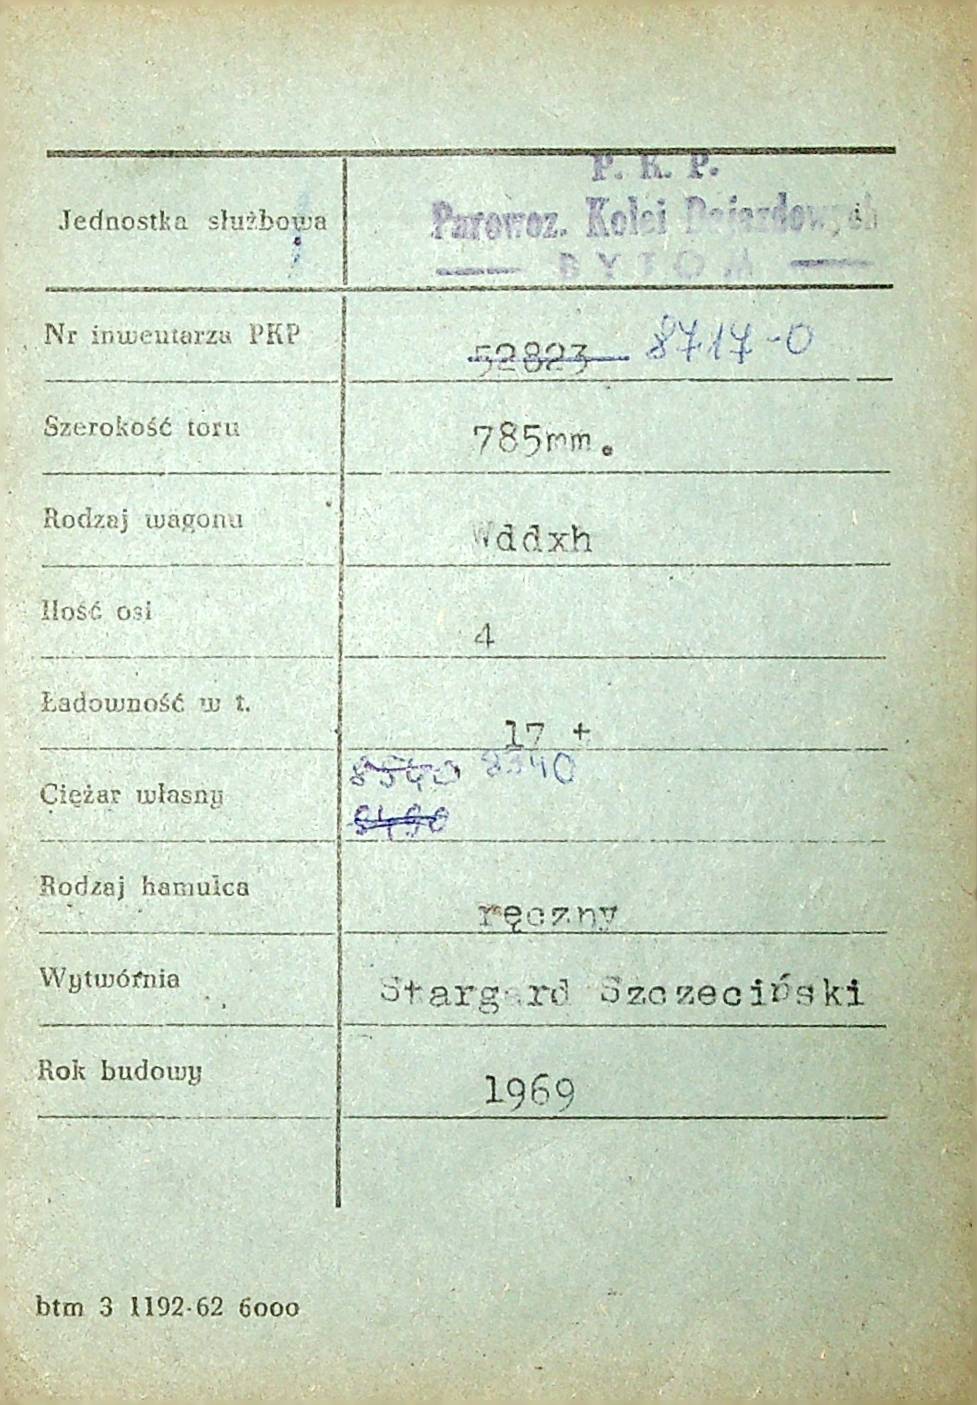 Jednostka służbowa
P. K. P.
Parowoz. Kolei Dojazdowych
BYTOM
Nr inwentarza PKP 52823 8717-0
Szerokość toru 785mm.
Rodzaj wagonu Wddxh
Ilość osi 4
Ładowność w t. 17 t
8540 8540
Ciężar własny
8490
Rodzaj hamulca ręczny
Wytwórnia Stargard Szczeciński
Rok budowy 1969
btm 3 1192-62 6000